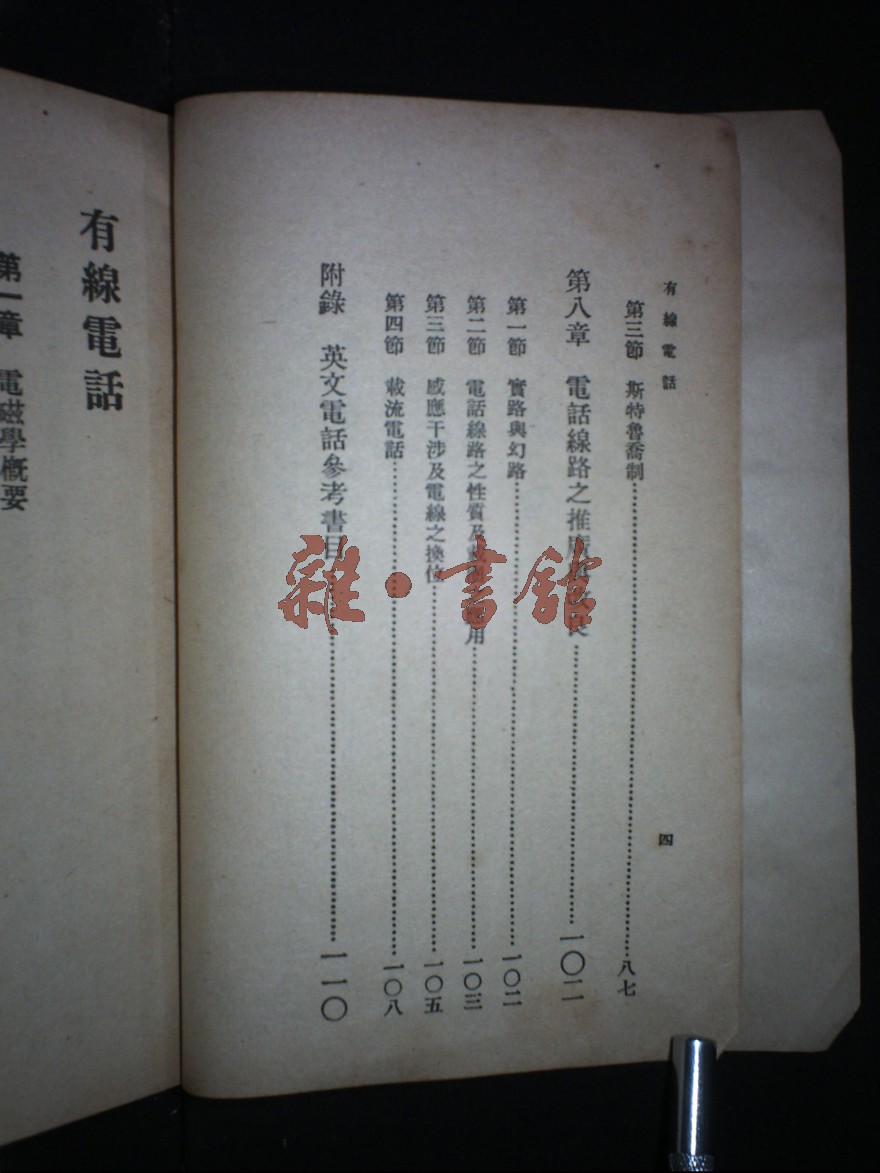 有線電話
四
第三節 斯特魯喬制 八七
第八章 電話線路之推廣 良 一〇二
第一節 實路與幻路 一〇二
第二節 電話線路之性質及 用 一〇三
第三節 感應干涉及電線之換位 一〇五
第四節 載流電話 一〇八
附錄 英文電話參考書目 一一〇
有線電話
第一章 電磁學概要
雜·書館